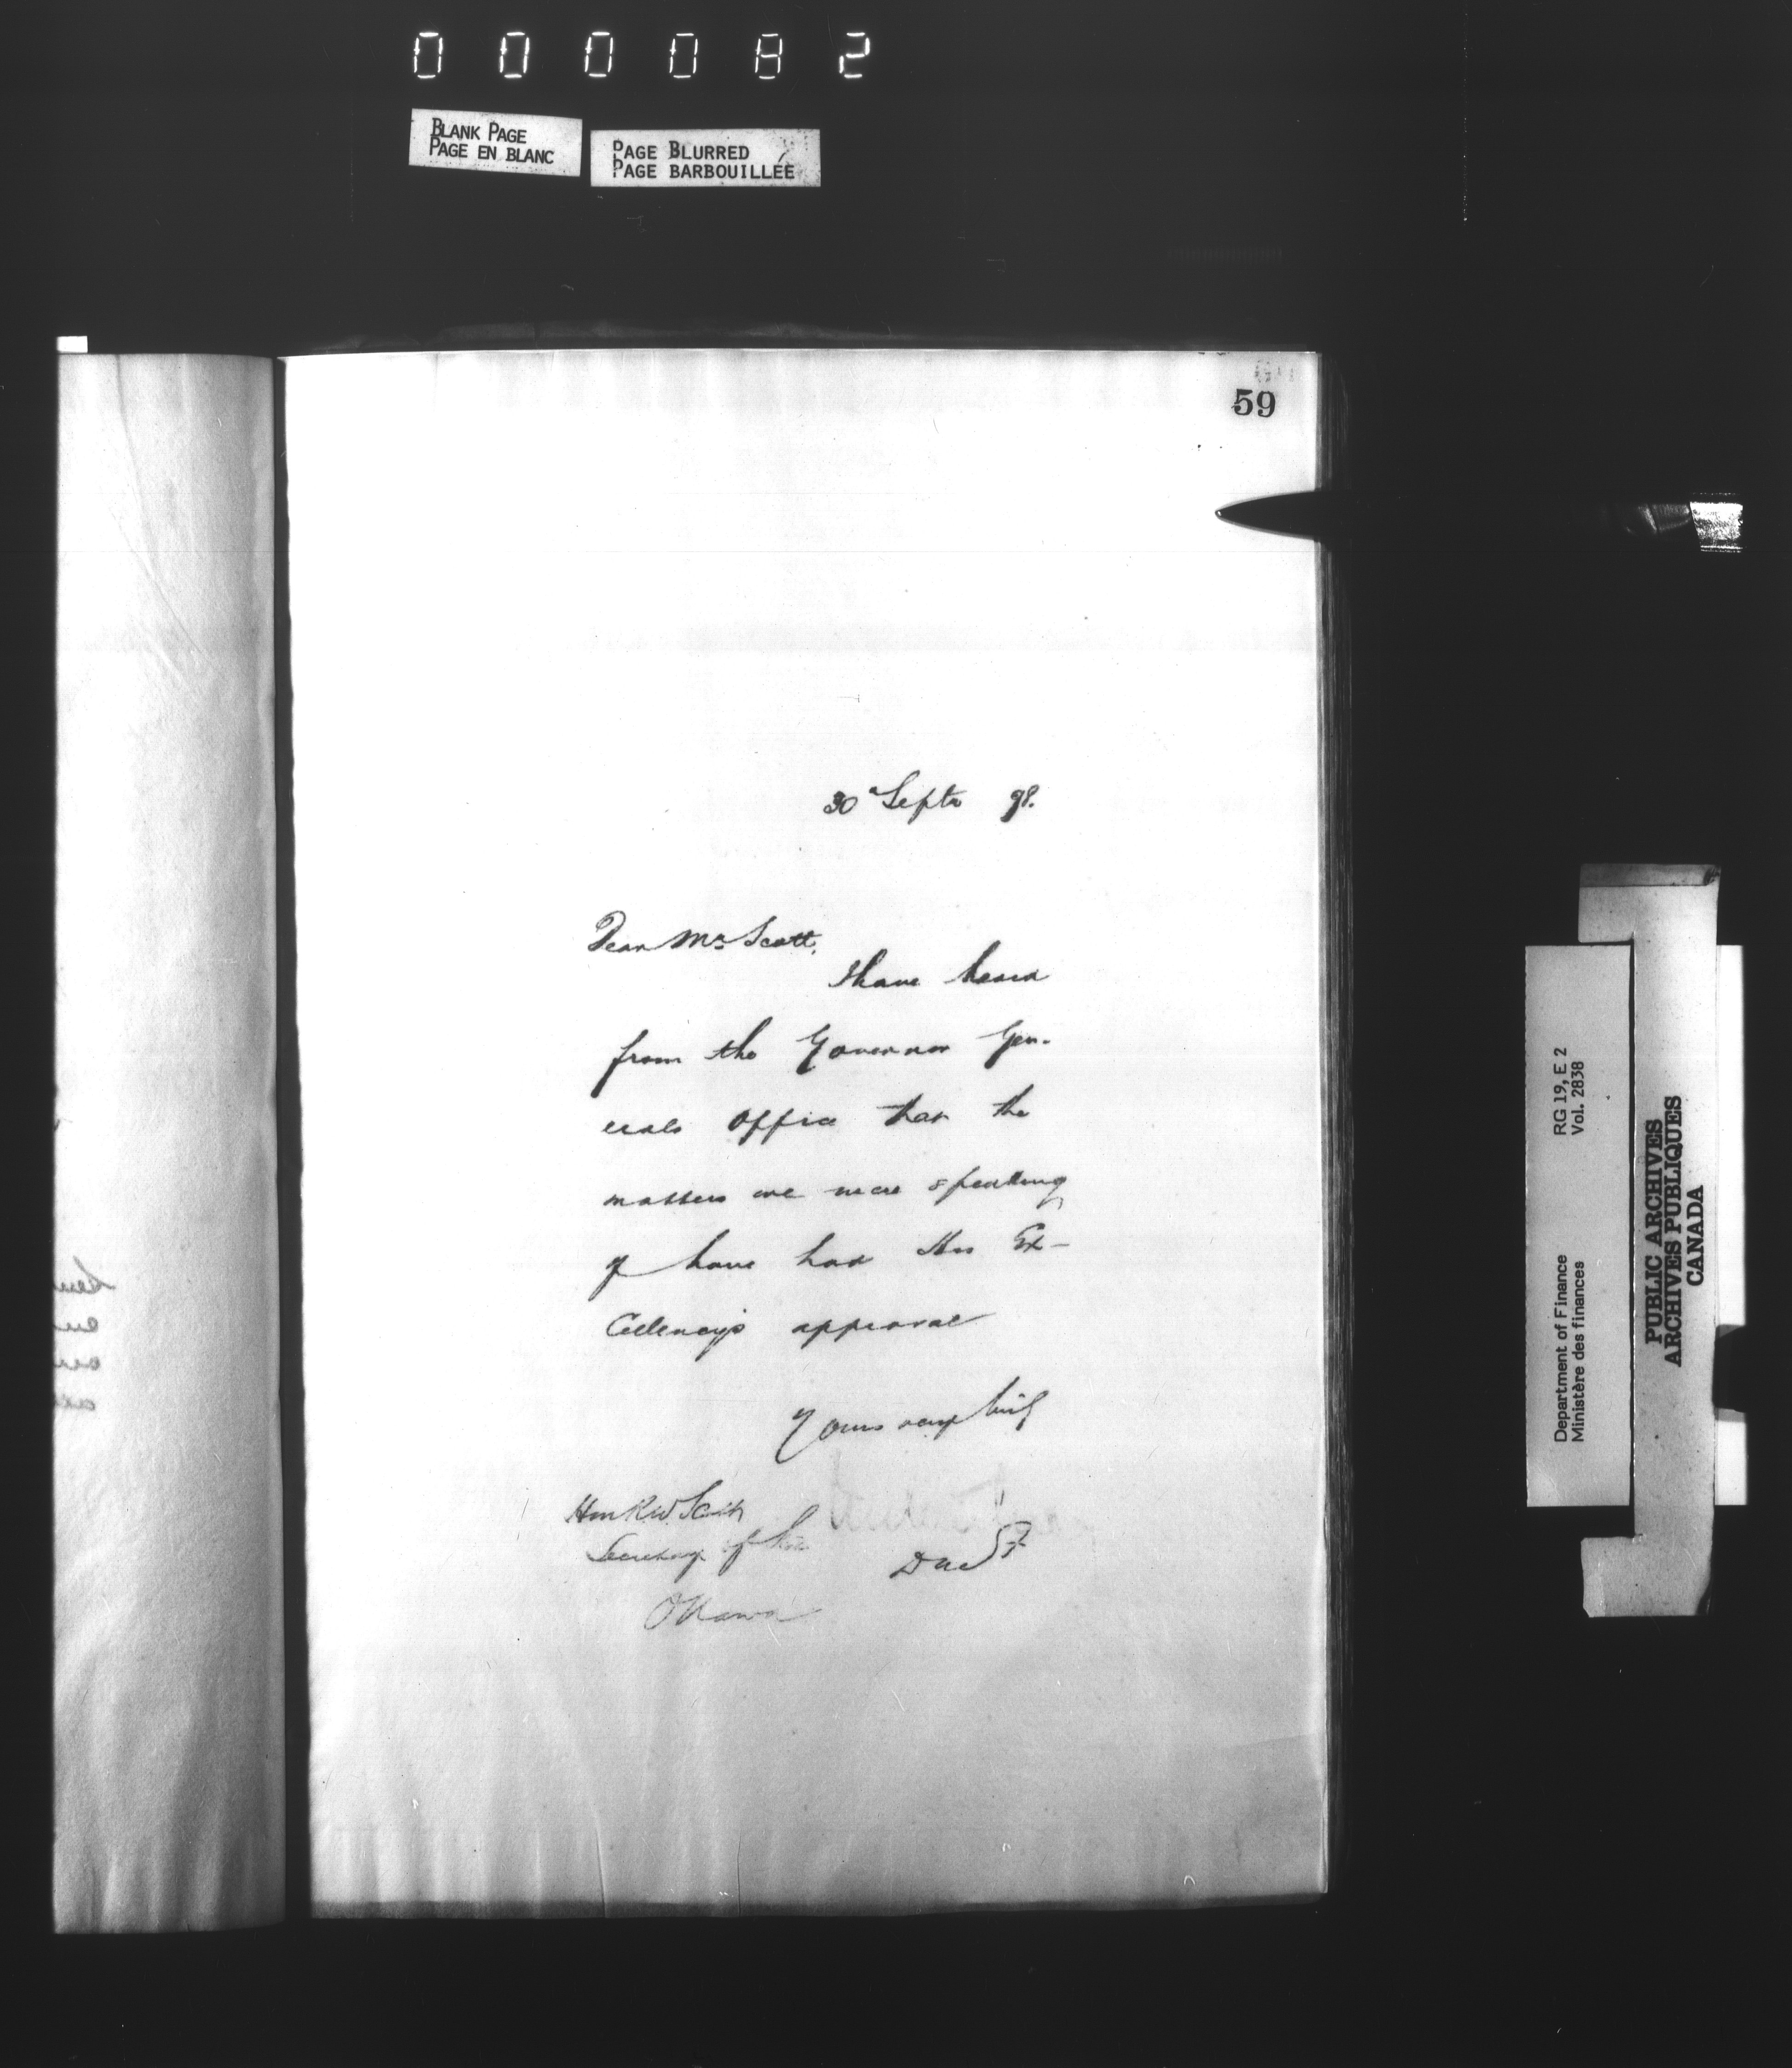 000082
BLANK PAGE
PAGE EN BLANC
PAGE BLURRED
PAGE BARBOUILLÉE
59
30 Septr 98.
Dear Mr Scott,
I have heard
from the Governor Gen-
erals Office that the
matters we were speaking
of have had His Ex-
cellency's approval
Yours very truly
Hon R W Scott
Secretary of State
Ottawa
RG 19, E 2
Vol. 2838
Department of Finance
Ministère des finances
PUBLIC ARCHIVES
ARCHIVES PUBLIQUES
CANADA